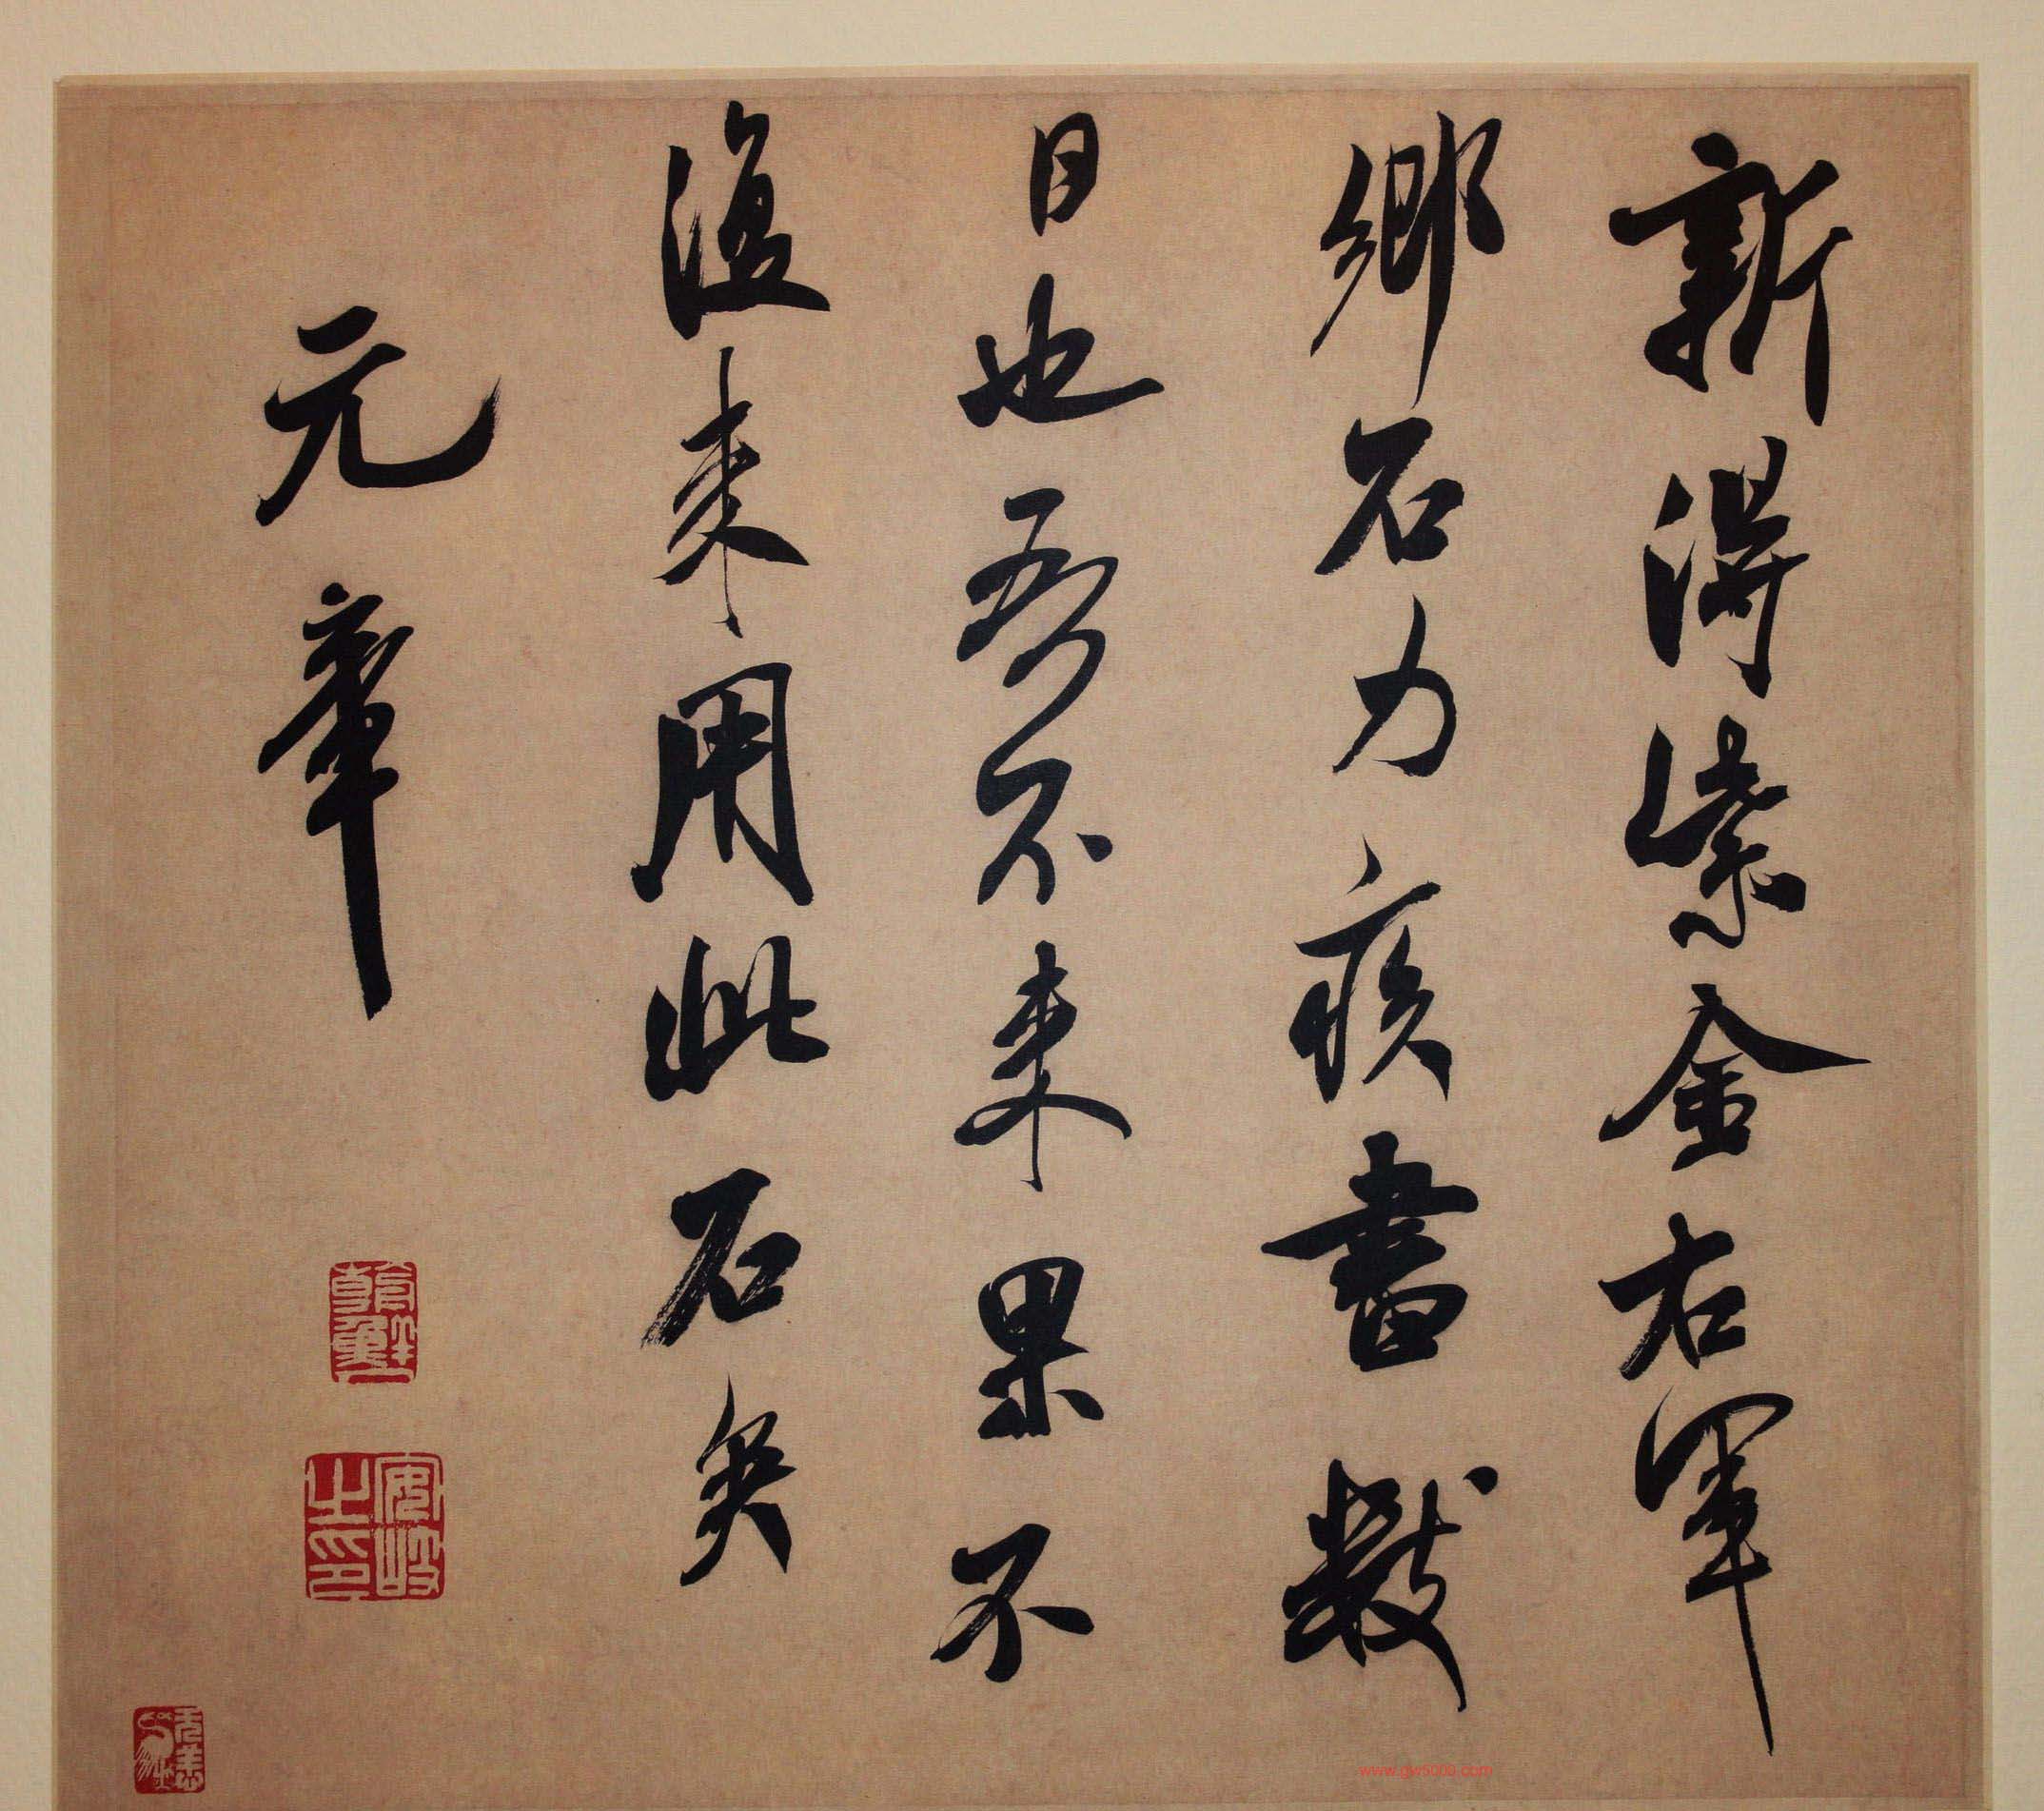 新得紫金右軍
鄉石力疾書數
日也吾不來果不
復来用此石矣
元章
www.gw5000.com